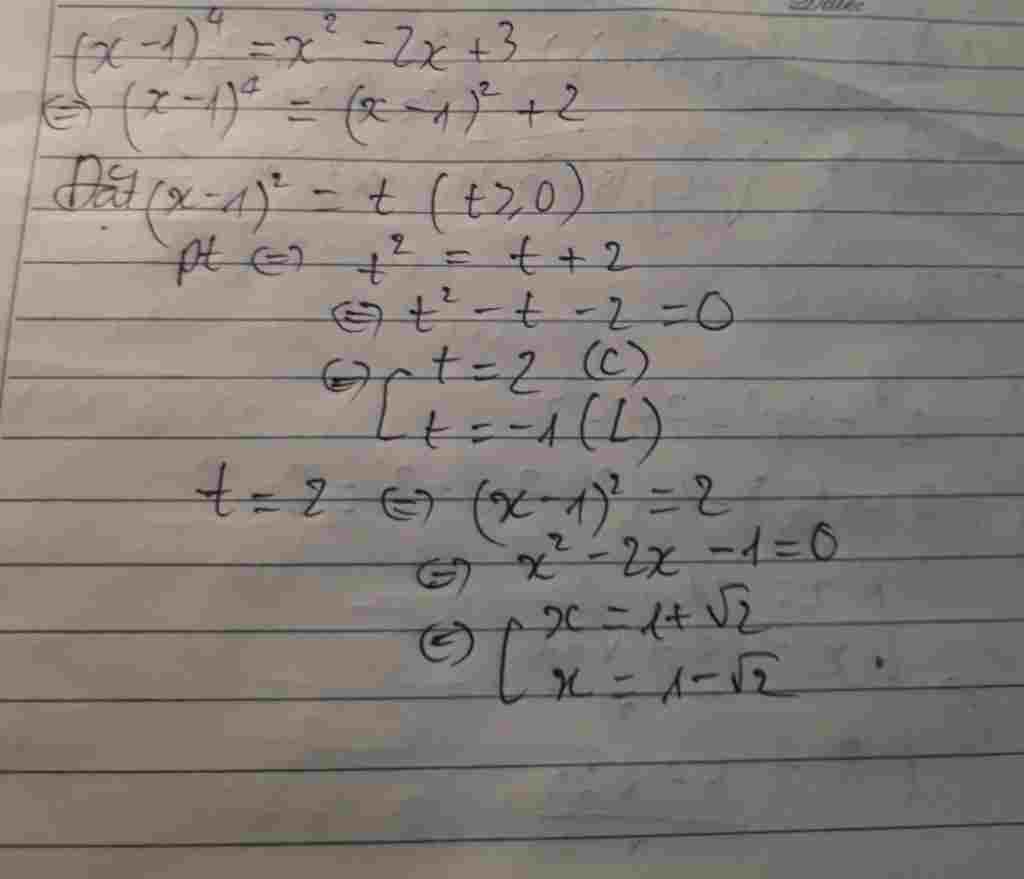 (x-1)⁴ = x² - 2x + 3
⇔ (x-1)⁴ = (x-1)² + 2
Đặt (x-1)² = t (t ≥ 0)
pt ⇔ t² = t + 2
⇔ t² - t - 2 = 0
⇔ [ t = 2 (C)
t = -1 (L)
t = 2 ⇔ (x-1)² = 2
⇔ x² - 2x - 1 = 0
⇔ [ x = 1 + √2
x = 1 - √2